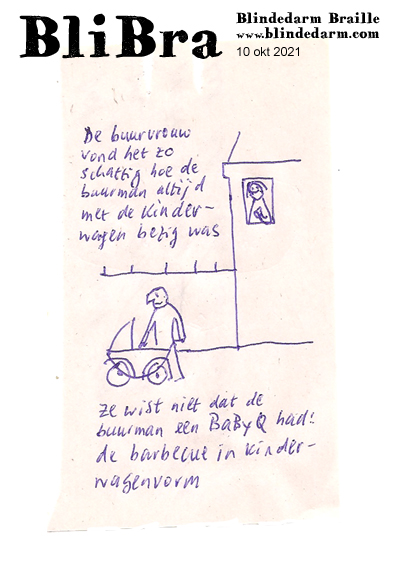 BliBra
Blindedarm Braille
www.blindedarm.com
10 okt 2021
De buurvrouw
vond het zo
schattig hoe de
buurman altijd
met de kinder-
wagen bezig was
ze wist niet dat de
buurman een BaByQ had!
de barbecue in kinder-
wagenvorm